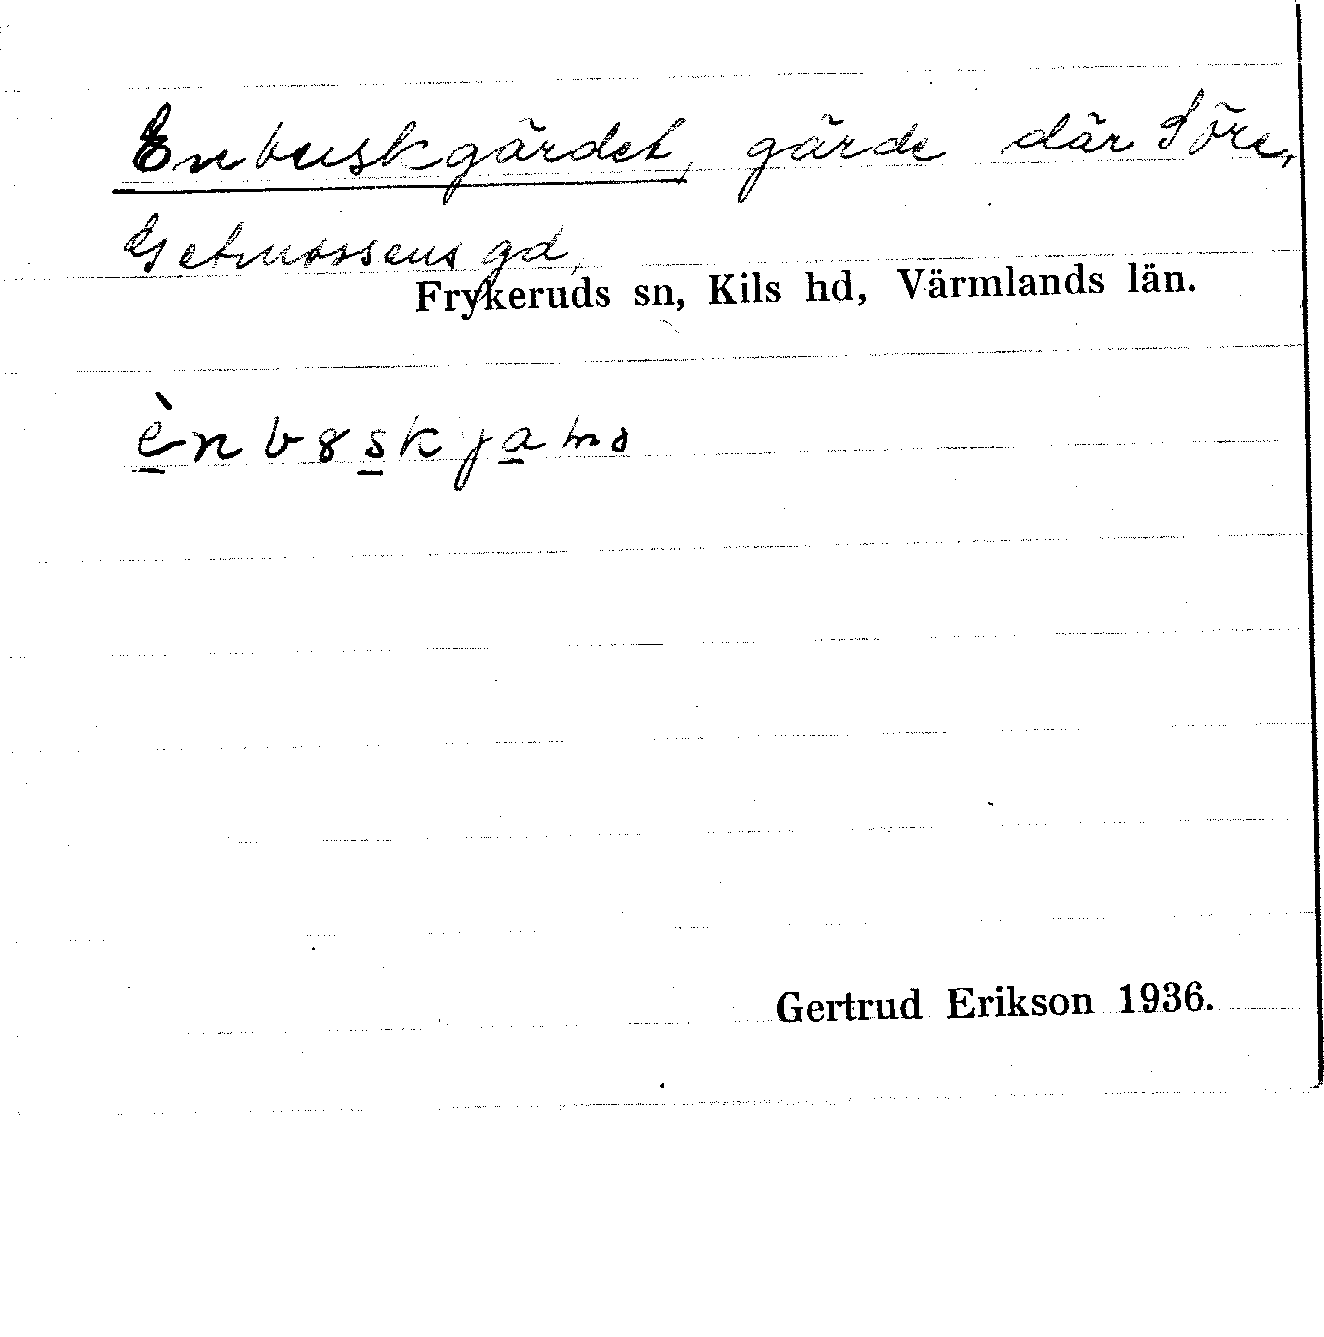 Enbuskgärdet, gärde där Söre,
Getmossens gd,
Frykeruds sn, Kils hd, Värmlands län.
Gertrud Erikson 1936.